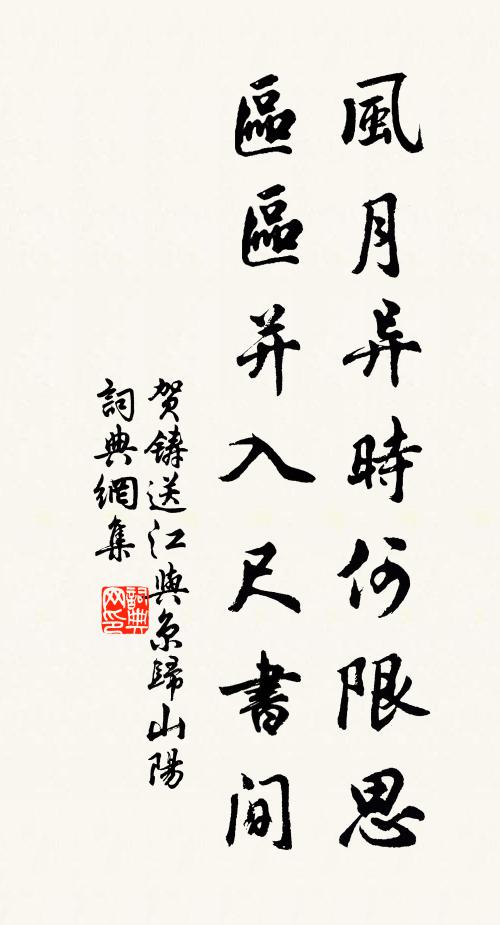 風月异時何限思
區區并入尺書间
贺鑄送江與京歸山陽
詞典網集
詞典网印